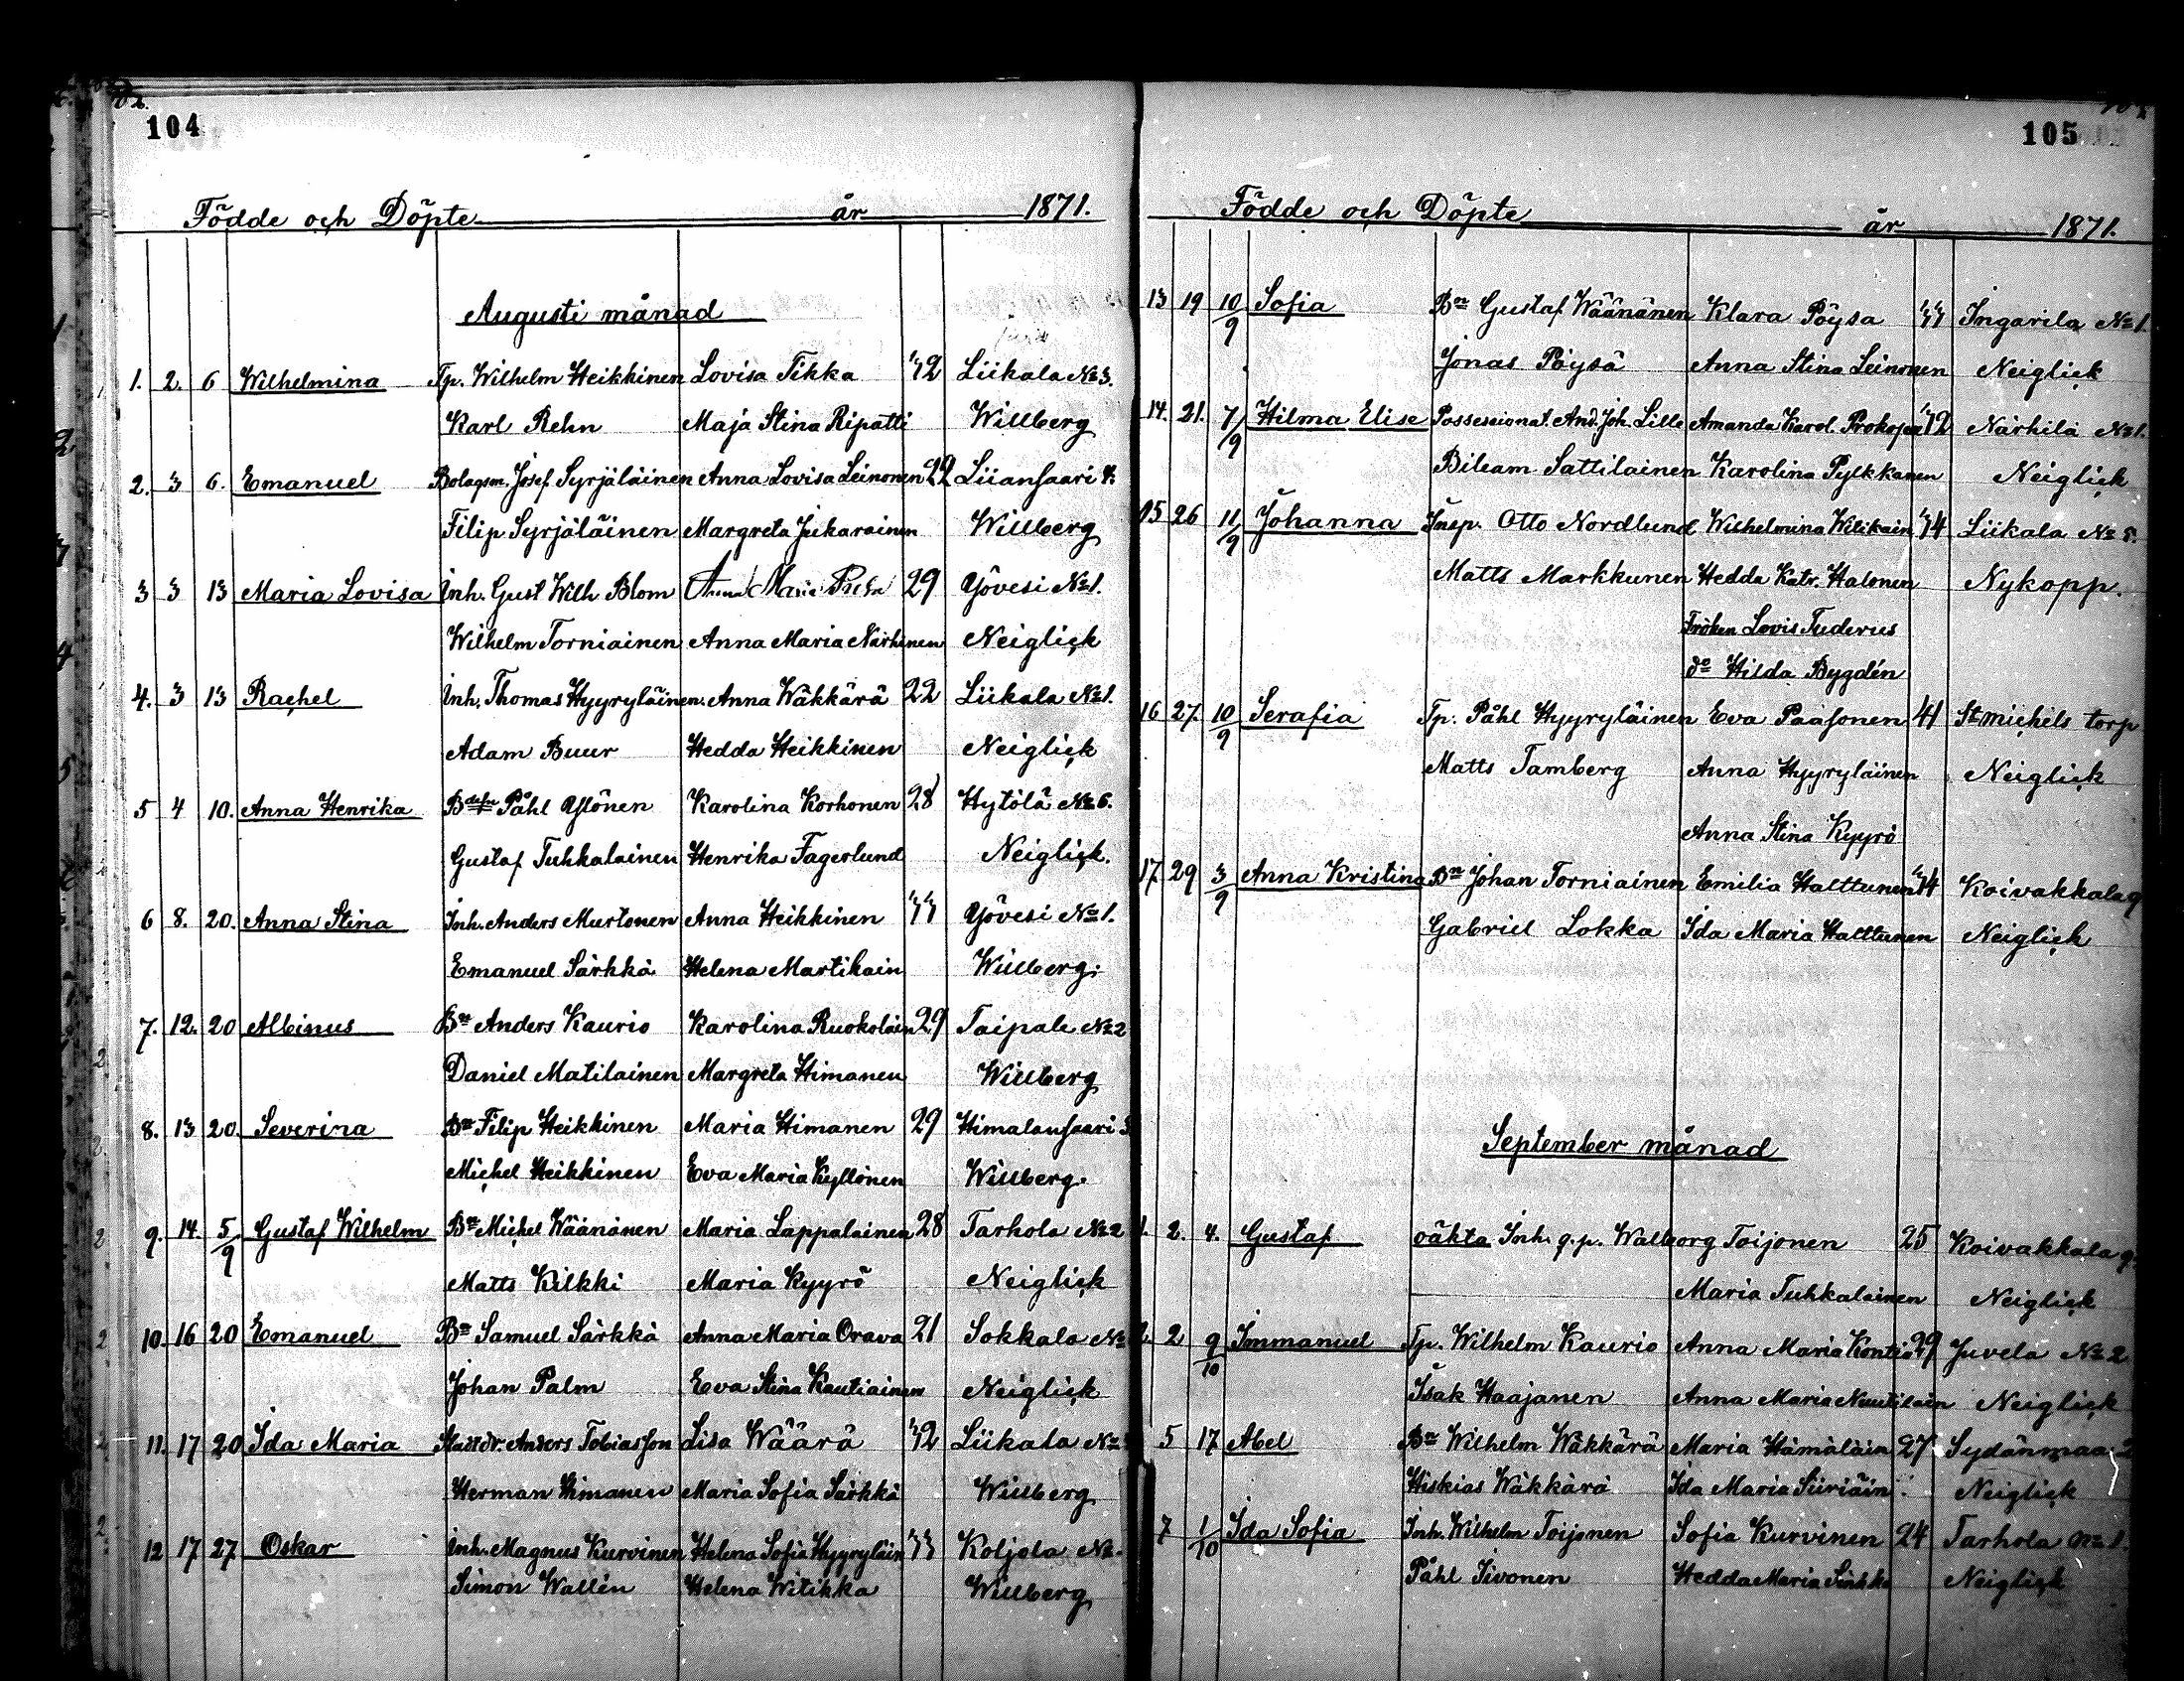 104
Födde och Döpte år 1871.
Augusti månad
1. 2. 6 Wilhelmina Tp. Wilhelm Heikkinen Lovisa Tikka 42 Liikala No 3.
Karl Rehn Maja Stina Ripatti Willberg
2. 3 6. Emanuel Bolagsm. Josef Syrjäläinen Anna Lovisa Leinonen 22 Liiansaari 4.
Filip Syrjäläinen Margreta Jukarainen Willberg
3 3 13 Maria Lovisa Inh. Gust Wilh Blom Anna Maria 29 Yövesi No 1.
Wilhelm Torniainen Anna Maria Närhinen Neiglick
4. 3 13 Rachel Inh. Thomas Hyyryläinen. Anna Wäkkärä 22 Liikala No 1.
Adam Buur Hedda Heikkinen Neiglick
5 4 10. Anna Henrika Påhl Ylönen Karolina Korhonen 28 Hytölä No 6.
Gustaf Tuhkalainen Henrika Fagerlund Neiglick.
6 8. 20. Anna Stina Inh. Anders Murtonen Anna Heikkinen Yövesi No 1.
Emanuel Särkkä Helena Martikain Willberg.
7. 12. 20 Albinus Bn Anders Kaurio Karolina Ruokolain 29 Taipale No 2
Daniel Matilainen Margreta Himanen Willberg
8. 13 20. Severina Bn Filip Heikkinen Maria Himanen 29 Himalansaari
Michel Heikkinen Eva Maria Kyllönen Willberg.
9. 14. 5/9 Gustaf Wilhelm Bn Michel Wäänänen Maria Lappalainen 28 Tarhola No 2
Matts Kilkki Maria Kyyrö Neiglick
10. 16 20 Emanuel Bn Samuel Särkkä Anna Maria Orava 21 Sokkala No
Johan Palm Eva Stina Kautiainen Neiglick
11. 17 20 Ida Maria Anders Tobiasson Lisa Wäärä 42 Liikala No
Herman Himanen Maria Sofia Särkkä Willberg
12 17 27 Oskar Inh. Magnus Kurvinen Helena Sofia Hyyryläin Koljola No.
Simon Wallén Helena Witikka Willberg
105
Födde och Döpte år 1871.
13 19 10/9 Sofia Bn Gustaf Wäänänen Klara Pöysä Ingarila No 1.
Jonas Pöysä Anna Stina Leinonen Neiglick
14. 21. 7/9 Hilma Elise Possessionat. And. Joh. Lille Amanda Karol. Prokope 42 Närhilä No 1.
Bileam Sattilainen Karolina Pylkkanen Neiglick
15 26 11/9 Johanna Insp. Otto Nordlund Wilhelmina Wilikain Liikala No 5.
Matts Markkunen Hedda Katr. Halonen Nykopp.
Fröken Lovis Tuderus
do Hilda Bygdén
16 27. 10/9 Serafia Tp. Påhl Hyyryläinen Eva Paasonen 41 St michels torp
Matts Tamberg Anna Hyyryläinen Neiglick
Anna Stina Kyyrö
17. 29 3/9 Anna Kristina Bn Johan Torniainen Emilia Halttunen Koivakkala 9
Gabriel Lokka Ida Maria Halttunen Neiglick
September månad
1. 2. 4. Gustaf oäkta Inh. q.p. Walborg Toijonen 25 Koivakkala 9.
Maria Tuhkalainen Neiglick
2. 2 9/10 Immanuel Tp. Wilhelm Kaurio Anna Maria Kontio 29 Juvela No 2
Isak Haajanen Anna Maria Nuutilain Neiglick
5 17 Abel Bn Wilhelm Wäkkärä Maria Hämäläin 27 Sydänmaa 2
Hiskias Wäkkärä Ida Maria Siiriäin Neiglick
7 1/10 Ida Sofia Inh. Wilhelm Toijonen Sofia Kurvinen 24 Tarhola No 1
Påhl Sivonen Hedda Maria Sinkko Neiglick